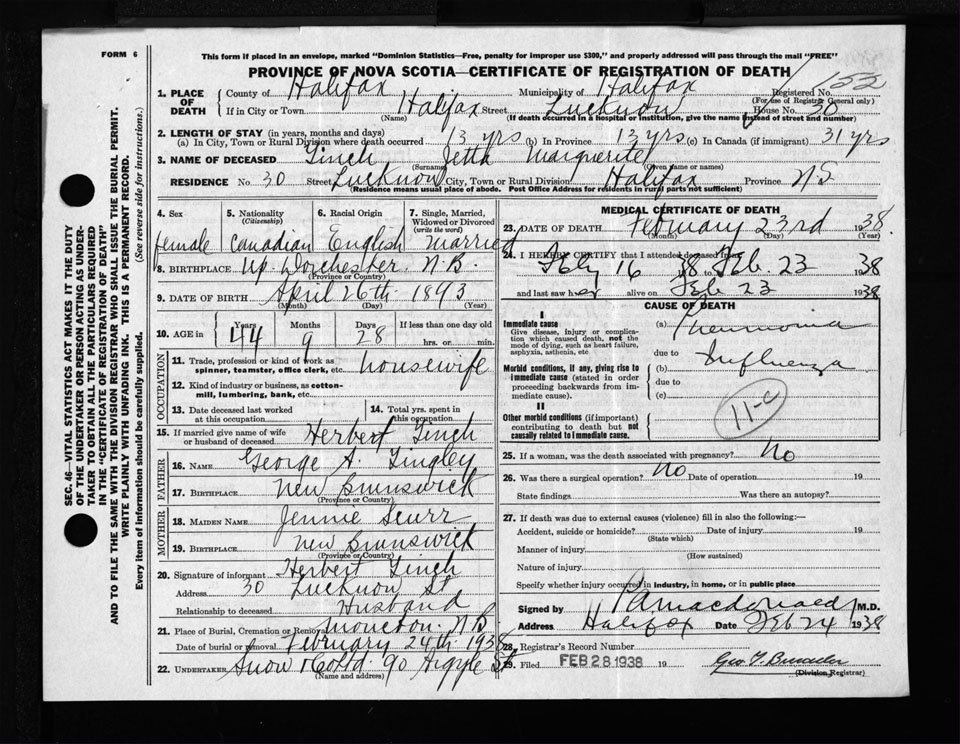 FORM 6
This form if placed in an envelope, marked "Dominion Statistics—Free, penalty for improper use $300," and properly addressed will pass through the mail "FREE"
PROVINCE OF NOVA SCOTIA—CERTIFICATE OF REGISTRATION OF DEATH
153
1. PLACE OF DEATH
County of Halifax Municipality of Halifax Registered No.
(For use of Registrar General only)
If in City or Town Halifax Street Lucknow House No. 30
(Name) (If death occurred in a hospital or institution, give the name instead of street and number)
2. LENGTH OF STAY (in years, months and days)
(a) In City, Town or Rural Division where death occurred 13 yrs (b) In Province 13 yrs (c) In Canada (if immigrant) 31 yrs
3. NAME OF DECEASED Ginch Jetta Marguerite
(Surname) (Given name or names)
RESIDENCE No. 30 Street Lucknow City, Town or Rural Division Halifax Province NS
(Residence means usual place of abode. Post Office Address for residents in rural parts not sufficient)
4. Sex 5. Nationality (Citizenship) 6. Racial Origin 7. Single, Married, Widowed or Divorced (write the word)
female Canadian English married
8. BIRTHPLACE Up. Worchester. N.B.
(Province or Country)
9. DATE OF BIRTH April 26th 1893
(Month) (Day) (Year)
10. AGE in Years Months Days If less than one day old
44 9 28 hrs. or min.
OCCUPATION
11. Trade, profession or kind of work as spinner, teamster, office clerk, etc. housewife
12. Kind of industry or business, as cotton-mill, lumbering, bank, etc.
13. Date deceased last worked at this occupation
14. Total yrs. spent in this occupation
15. If married give name of wife or husband of deceased Herbert Ginch
FATHER
16. NAME George A. Tingley
17. BIRTHPLACE New Brunswick
(Province or Country)
MOTHER
18. MAIDEN NAME Jennie Scurr
19. BIRTHPLACE New Brunswick
(Province or Country)
20. Signature of informant Herbert Ginch
Address 30 Lucknow St
Relationship to deceased Husband
21. Place of Burial, Cremation or Removal Moncton. N.B
Date of burial or removal February 24th 1938
22. UNDERTAKER Snow & Co Ltd. 90 Argyle St
(Name and address)
MEDICAL CERTIFICATE OF DEATH
23. DATE OF DEATH February 23rd 1938
(Month) (Day) (Year)
24. I HEREBY CERTIFY that I attended deceased from
Feby 16 38 to Feb. 23 1938
and last saw her alive on Feb 23 1938
CAUSE OF DEATH
I
Immediate cause
Give disease, injury or complication which caused death, not the mode of dying, such as heart failure, asphyxia, asthenia, etc.
(a) Pneumonia
due to
Morbid conditions, if any, giving rise to immediate cause (stated in order proceeding backwards from immediate cause).
(b) Influenza
due to
(c)
II
Other morbid conditions (if important) contributing to death but not causally related to immediate cause.
11-c
25. If a woman, was the death associated with pregnancy? No
26. Was there a surgical operation? No Date of operation 19
State findings Was there an autopsy?
27. If death was due to external causes (violence) fill in also the following:—
Accident, suicide or homicide? Date of injury 19
(State which)
Manner of injury
(How sustained)
Nature of injury
Specify whether injury occurred in industry, in home, or in public place
Signed by M.D.
Address Halifax Date Feb 24 1938
28. Registrar's Record Number
29. Filed FEB 28 1938 19
(Division Registrar)
SEC. 46—VITAL STATISTICS ACT MAKES IT THE DUTY
OF THE UNDERTAKER OR PERSON ACTING AS UNDER-
TAKER TO OBTAIN ALL THE PARTICULARS REQUIRED
IN THE "CERTIFICATE OF REGISTRATION OF DEATH"
AND TO FILE THE SAME WITH THE DIVISION REGISTRAR WHO SHALL ISSUE THE BURIAL PERMIT.
WRITE PLAINLY WITH UNFADING INK. THIS IS A PERMANENT RECORD.
Every item of information should be carefully supplied. (See reverse side for instructions.)